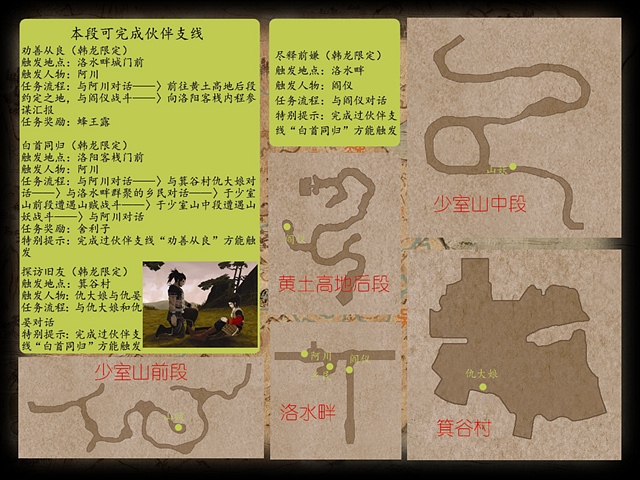 本段可完成伙伴支线
劝善从良（韩龙限定）
触发地点：洛水畔城门前
触发人物：阿川
任务流程：与阿川对话——〉前往黄土高地后段
约定之地，与阎仪战斗——〉向洛阳客栈内程参
谋汇报
任务奖励：蜂王露
白首同归（韩龙限定）
触发地点：洛阳客栈门前
触发人物：阿川
任务流程：与阿川对话——〉与箕谷村仇大娘对
话——〉与洛水畔群聚的乡民对话——〉于少室
山前段遭遇山贼战斗——〉于少室山中段遭遇山
妖战斗——〉与阿川对话
任务奖励：舍利子
特别提示：完成过伙伴支线“劝善从良”方能触
发
探访旧友（韩龙限定）
触发地点：箕谷村
触发人物：仇大娘与仇晏
任务流程：与仇大娘和仇
晏对话
特别提示：完成过伙伴支
线“白首同归”方能触发
尽释前嫌（韩龙限定）
触发地点：洛水畔
触发人物：阎仪
任务流程：与阎仪对话
特别提示：完成过伙伴支
线“白首同归”方能触发
山妖
少室山中段
黄土高地后段
少室山前段
阿川
阎仪
洛水畔
仇大娘
箕谷村